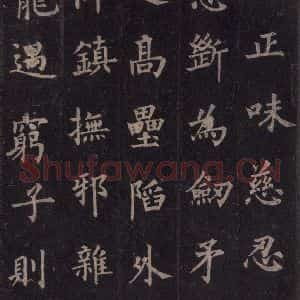 正味慈忍
斷為劒矛
高壘陷外
鎮撫邪雜
遇窮子則
Shufawang.CN